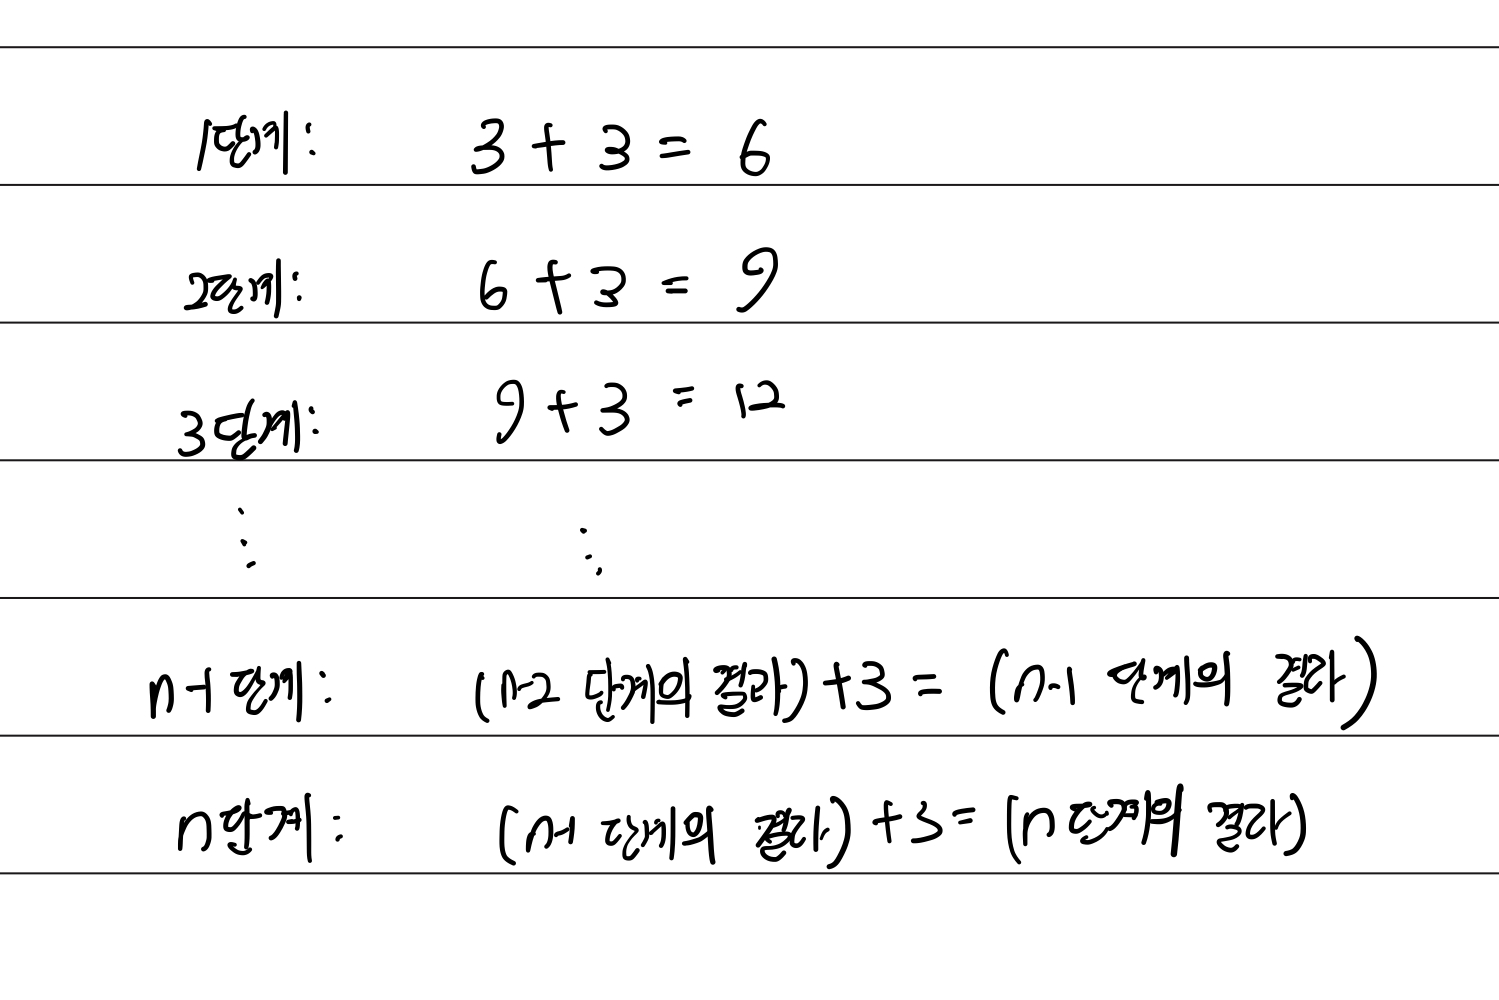 1단계: 3 + 3 = 6
2단계: 6 + 3 = 9
3단계: 9 + 3 = 12
⋮ ⋮
n-1 단계: (n-2 단계의 결과) + 3 = (n-1 단계의 결과)
n단계: (n-1 단계의 결과) + 3 = (n 단계의 결과)